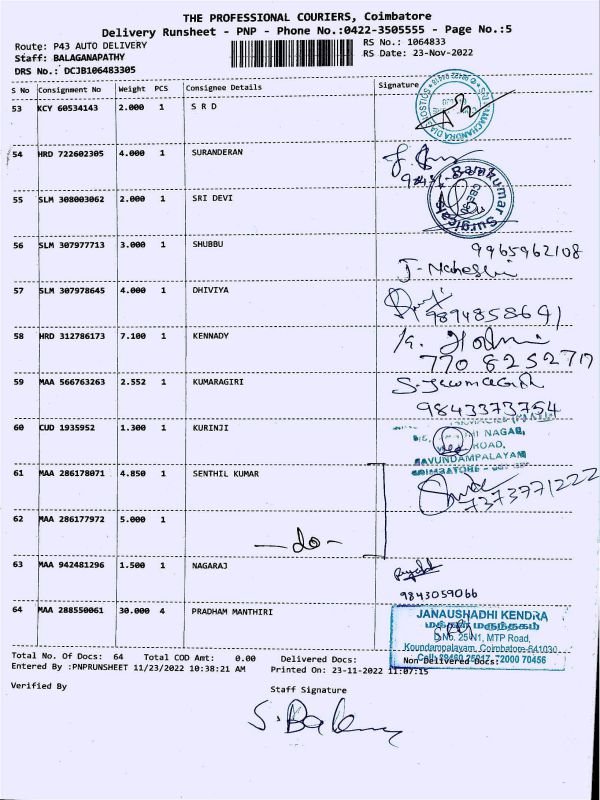 THE PROFESSIONAL COURIERS, Coimbatore
Delivery Runsheet - PNP - Phone No.:0422-3505555 - Page No.:5
Route: P43 AUTO DELIVERY RS No.: 1064833
Staff: BALAGANAPATHY RS Date: 23-Nov-2022
DRS No.: DCJB106483305
S No Consignment No Weight PCS Consignee Details Signature
53 KCY 60534143 2.000 1 S R D
54 HRD 722602305 4.000 1 SURANDERAN
55 SLM 308003062 2.000 1 SRI DEVI
Surgicals
56 SLM 307977713 3.000 1 SHUBBU 9965962108
57 SLM 307978645 4.000 1 DHIVIYA
9894858691
58 HRD 312786173 7.100 1 KENNADY
770 8252717
59 MAA 566763263 2.552 1 KUMARAGIRI
9843373754
60 CUD 1935952 1.300 1 KURINJI
NAGAR,
ROAD,
61 MAA 286178071 4.850 1 SENTHIL KUMAR
7373771222
62 MAA 286177972 5.000 1
- do -
63 MAA 942481296 1.500 1 NAGARAJ
9843059066
64 MAA 288550061 30.000 4 PRADHAM MANTHIRI
JANAUSHADHI KENDRA
மக்கள் மருந்தகம்
D.No. 25 N1, MTP Road,
Koundampalayam, Coimbatore-641030
72000 70456
Total No. Of Docs: 64 Total COD Amt: 0.00 Delivered Docs: Non-Delivered Docs:
Entered By :PNPRUNSHEET 11/23/2022 10:38:21 AM Printed On: 23-11-2022 11:07:15
Verified By Staff Signature